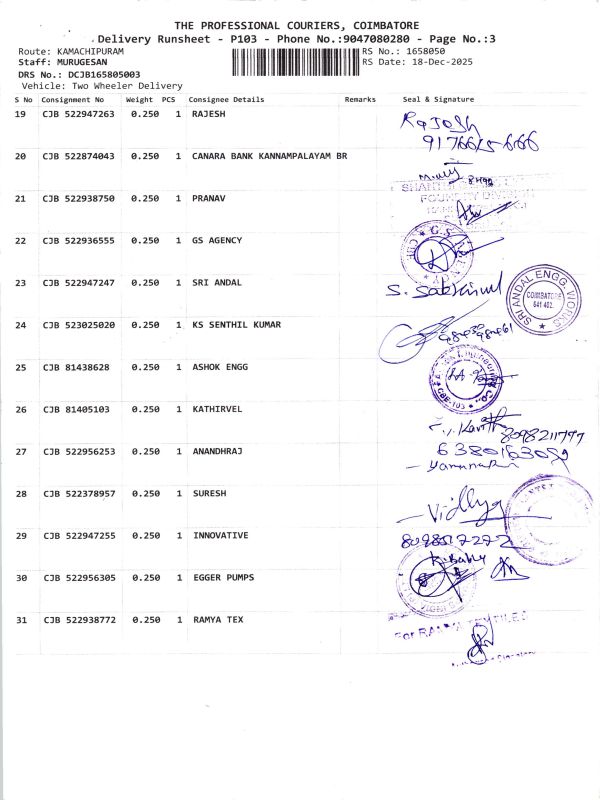 THE PROFESSIONAL COURIERS, COIMBATORE
Delivery Runsheet - P103 - Phone No.:9047080280 - Page No.:3
Route: KAMACHIPURAM RS No.: 1658050
Staff: MURUGESAN RS Date: 18-Dec-2025
DRS No.: DCJB165805003
Vehicle: Two Wheeler Delivery
S No Consignment No Weight PCS Consignee Details Remarks Seal & Signature
19 CJB 522947263 0.250 1 RAJESH Rajesh
9176615666
20 CJB 522874043 0.250 1 CANARA BANK KANNAMPALAYAM BR
21 CJB 522938750 0.250 1 PRANAV
FOUNDRY DIVISION
22 CJB 522936555 0.250 1 GS AGENCY
23 CJB 522947247 0.250 1 SRI ANDAL
SRI ANDAL ENGG. WORKS
COIMBATORE
641 402.
24 CJB 523025020 0.250 1 KS SENTHIL KUMAR
25 CJB 81438628 0.250 1 ASHOK ENGG
CBE-103
26 CJB 81405103 0.250 1 KATHIRVEL
8098211797
27 CJB 522956253 0.250 1 ANANDHRAJ
28 CJB 522378957 0.250 1 SURESH
Vidhya
29 CJB 522947255 0.250 1 INNOVATIVE
30 CJB 522956305 0.250 1 EGGER PUMPS
31 CJB 522938772 0.250 1 RAMYA TEX